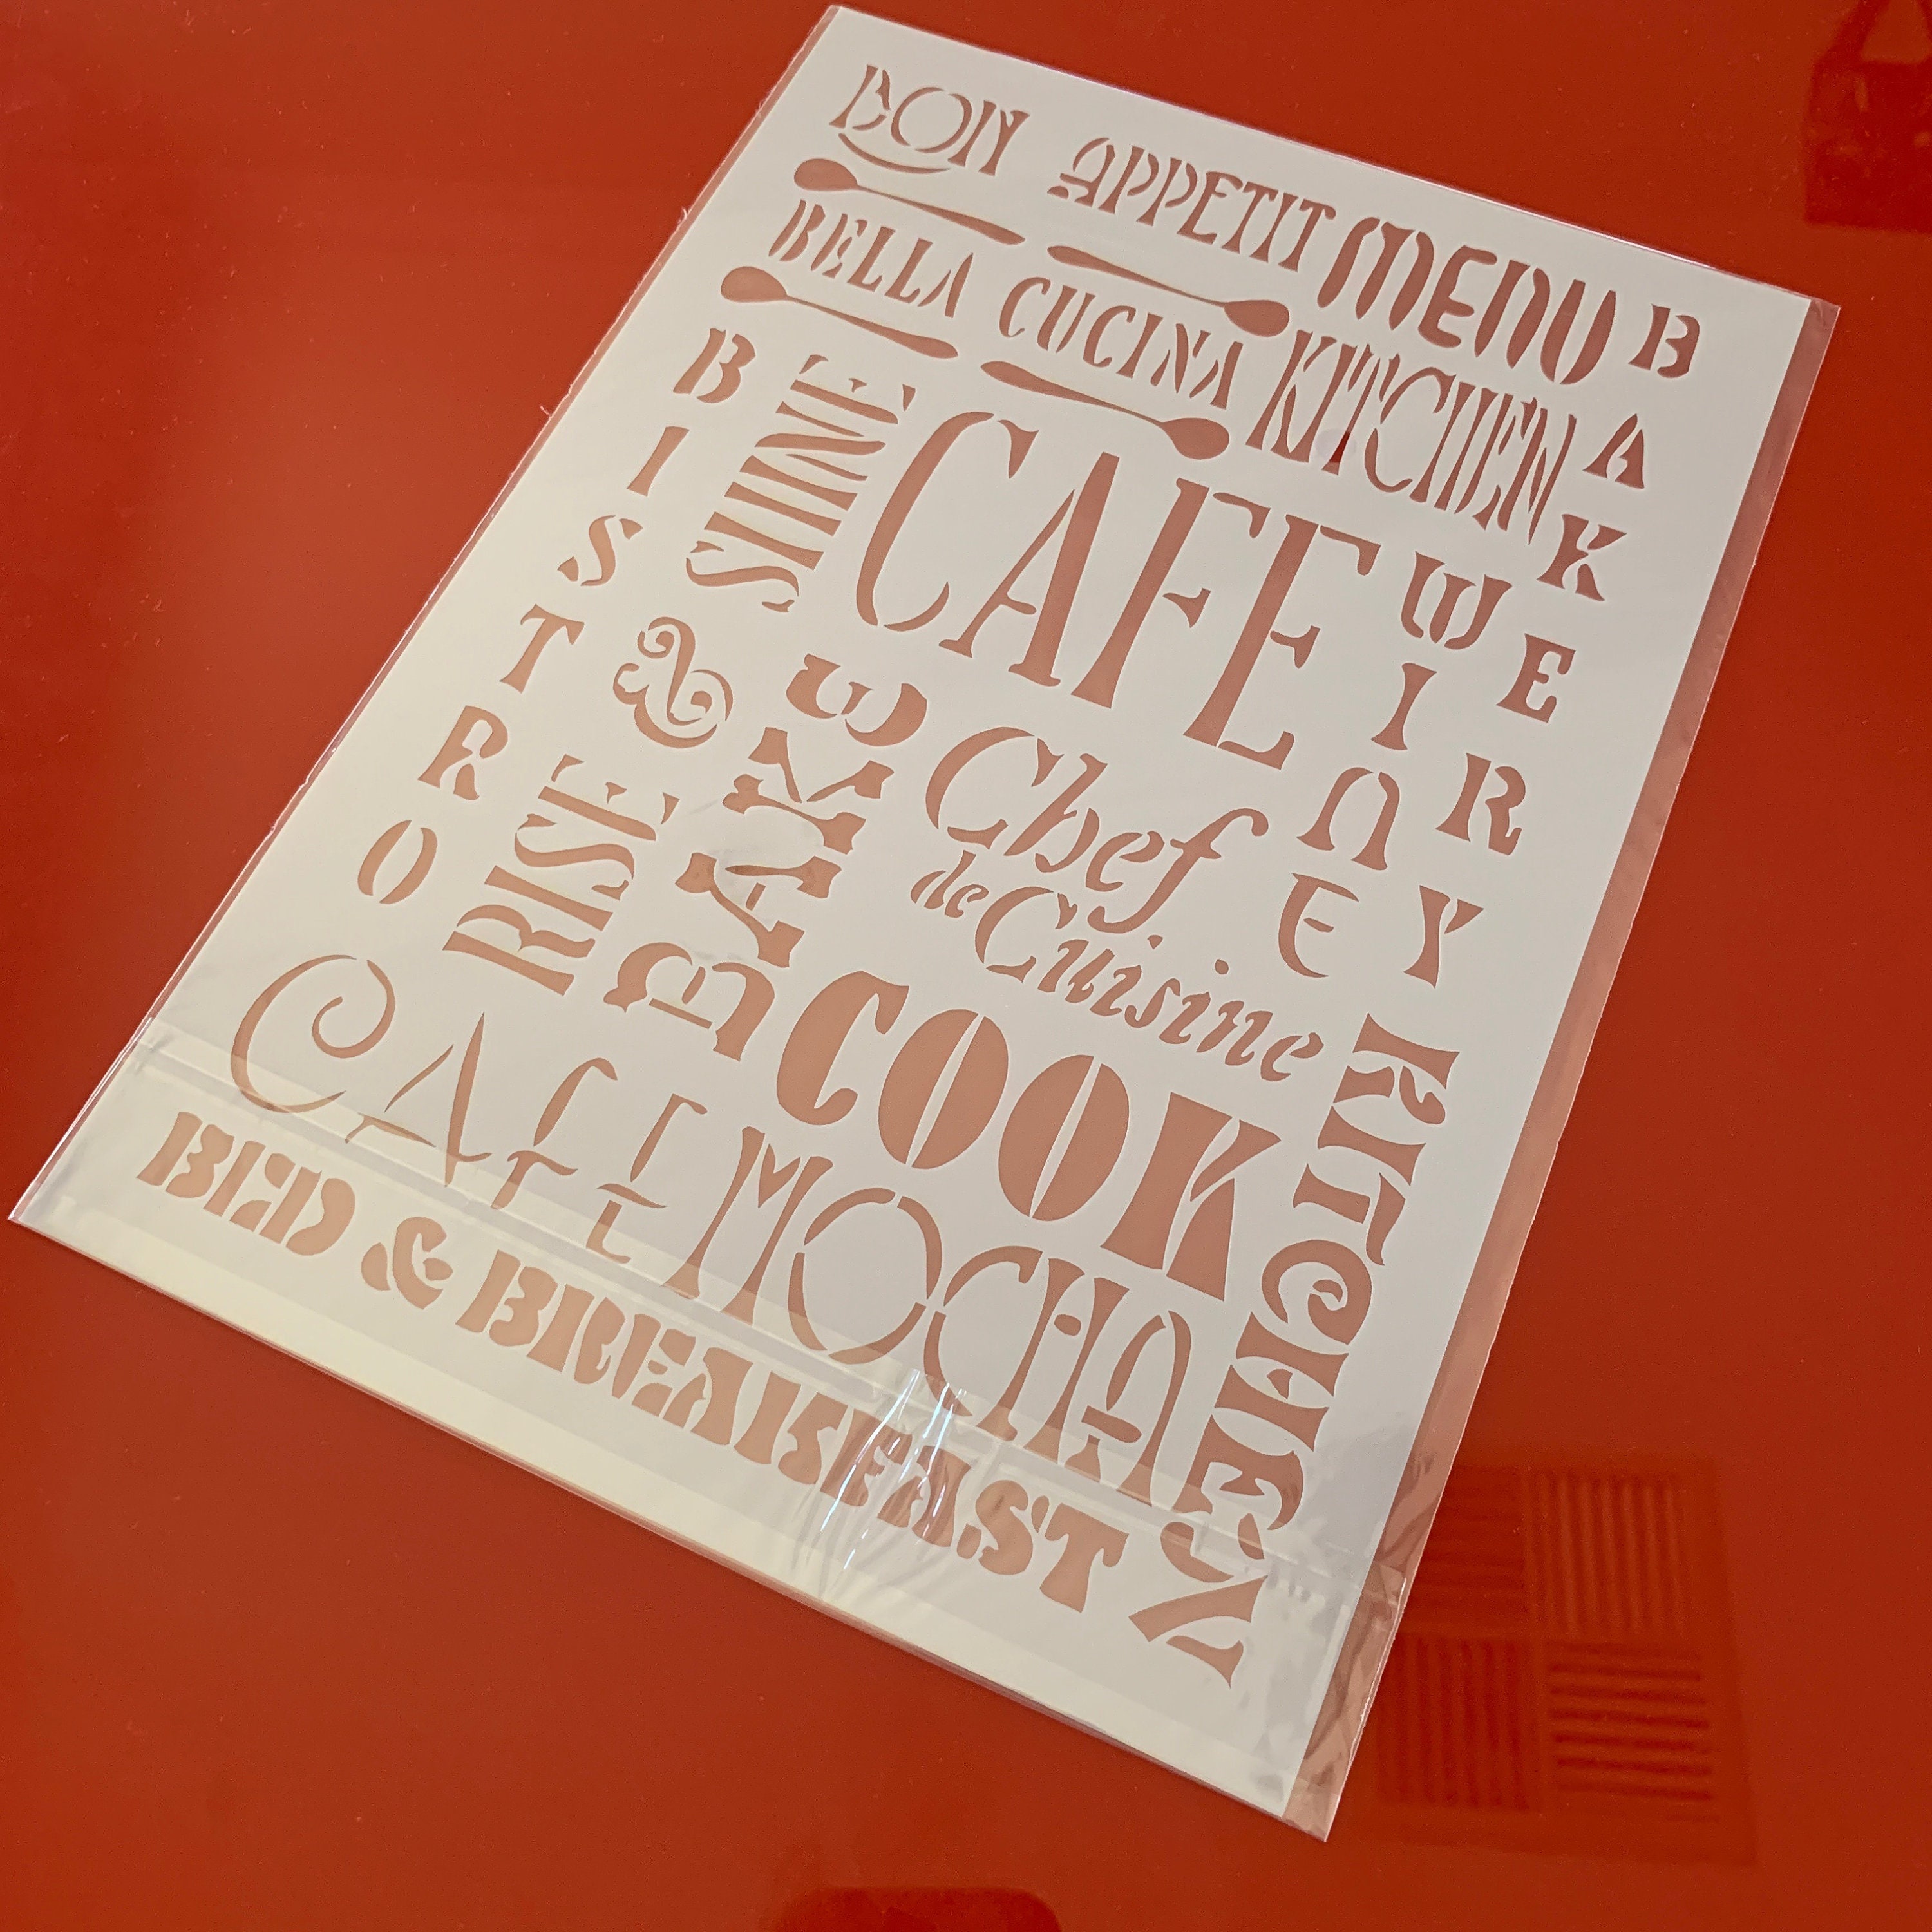 BON APPETIT MENU
BELLA CUCINA KITCHEN
BAKERY
BISTRO
RISE & SHINE
CAFE
WINE
BAKE
Chef
de Cuisine
COOK
KITCHEN
CAFE MOCHA
BED & BREAKFAST